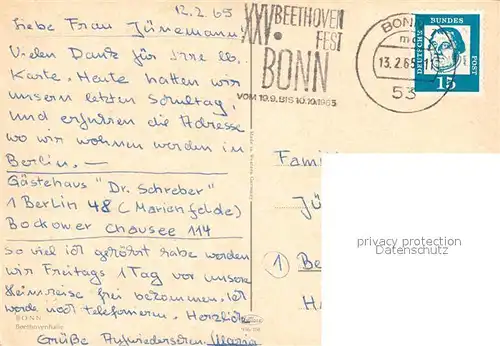 12.2.65
Liebe Frau Jünemann!
Vielen Dank für Ihre lb.
Karte. Heute hatten wir
unsern letzten Schultag
und erfuhren die Adresse
wo wir wohnen werden in
Berlin. —
Gästehaus "Dr. Schreber"
1 Berlin 48 (Marienfelde)
Bockower Chausee 114
so viel ich gehört habe werden
wir Freitags 1 Tag vor unsere
Heimreise frei bekommen. Ich
werde noch telefonieren. Herzliche
Grüße Aufwiederschen Maria
BONN
Beethovenhalle
XXV. BEETHOVEN
FEST
BONN
VOM 19.9. BIS 10.10.1965
BONN
13.2.65
53
BUNDES
DEUTSCHE
POST
15
Famil
Jü
1 Be
H
privacy protection
Datenschutz